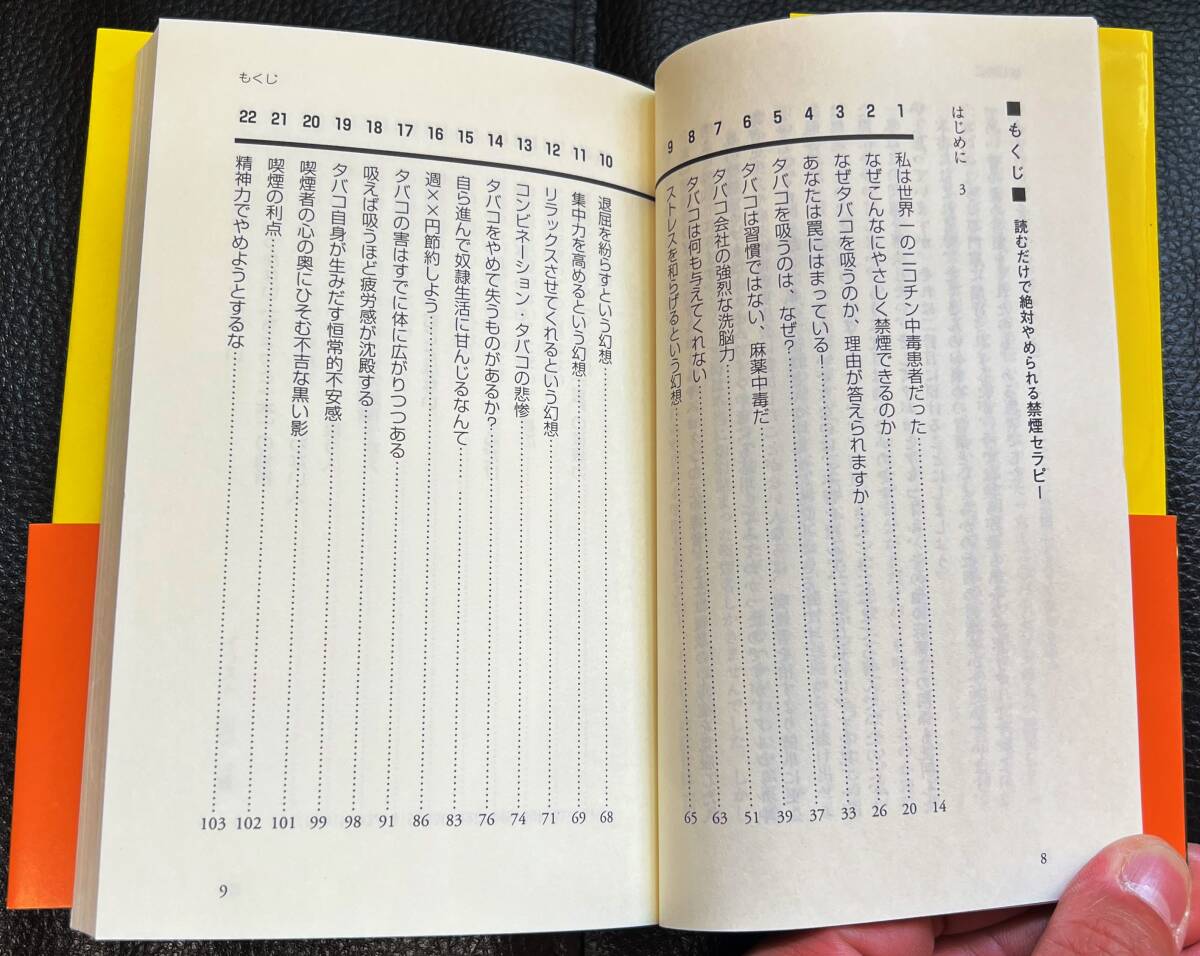 ■もくじ■ 読むだけで絶対やめられる禁煙セラピー
はじめに 3
1 私は世界一のニコチン中毒患者だった……14
2 なぜこんなにやさしく禁煙できるのか……20
3 なぜタバコを吸うのか、理由が答えられますか……26
4 あなたは罠にはまっている!……33
5 タバコを吸うのは、なぜ?……37
6 タバコは習慣ではない、麻薬中毒だ……39
7 タバコ会社の強烈な洗脳力……51
8 タバコは何も与えてくれない……63
9 ストレスを和らげるという幻想……65
8
もくじ
10 退屈を紛らすという幻想……68
11 集中力を高めるという幻想……69
12 リラックスさせてくれるという幻想……71
13 コンビネーション・タバコの悲惨……74
14 タバコをやめて失うものがあるか?……76
15 自ら進んで奴隷生活に甘んじるなんて……83
16 週××円節約しよう……86
17 タバコの害はすでに体に広がりつつある……91
18 吸えば吸うほど疲労感が沈殿する……98
19 タバコ自身が生みだす恒常的不安感……99
20 喫煙者の心の奥にひそむ不吉な黒い影……101
21 喫煙の利点……102
22 精神力でやめようとするな……103
9